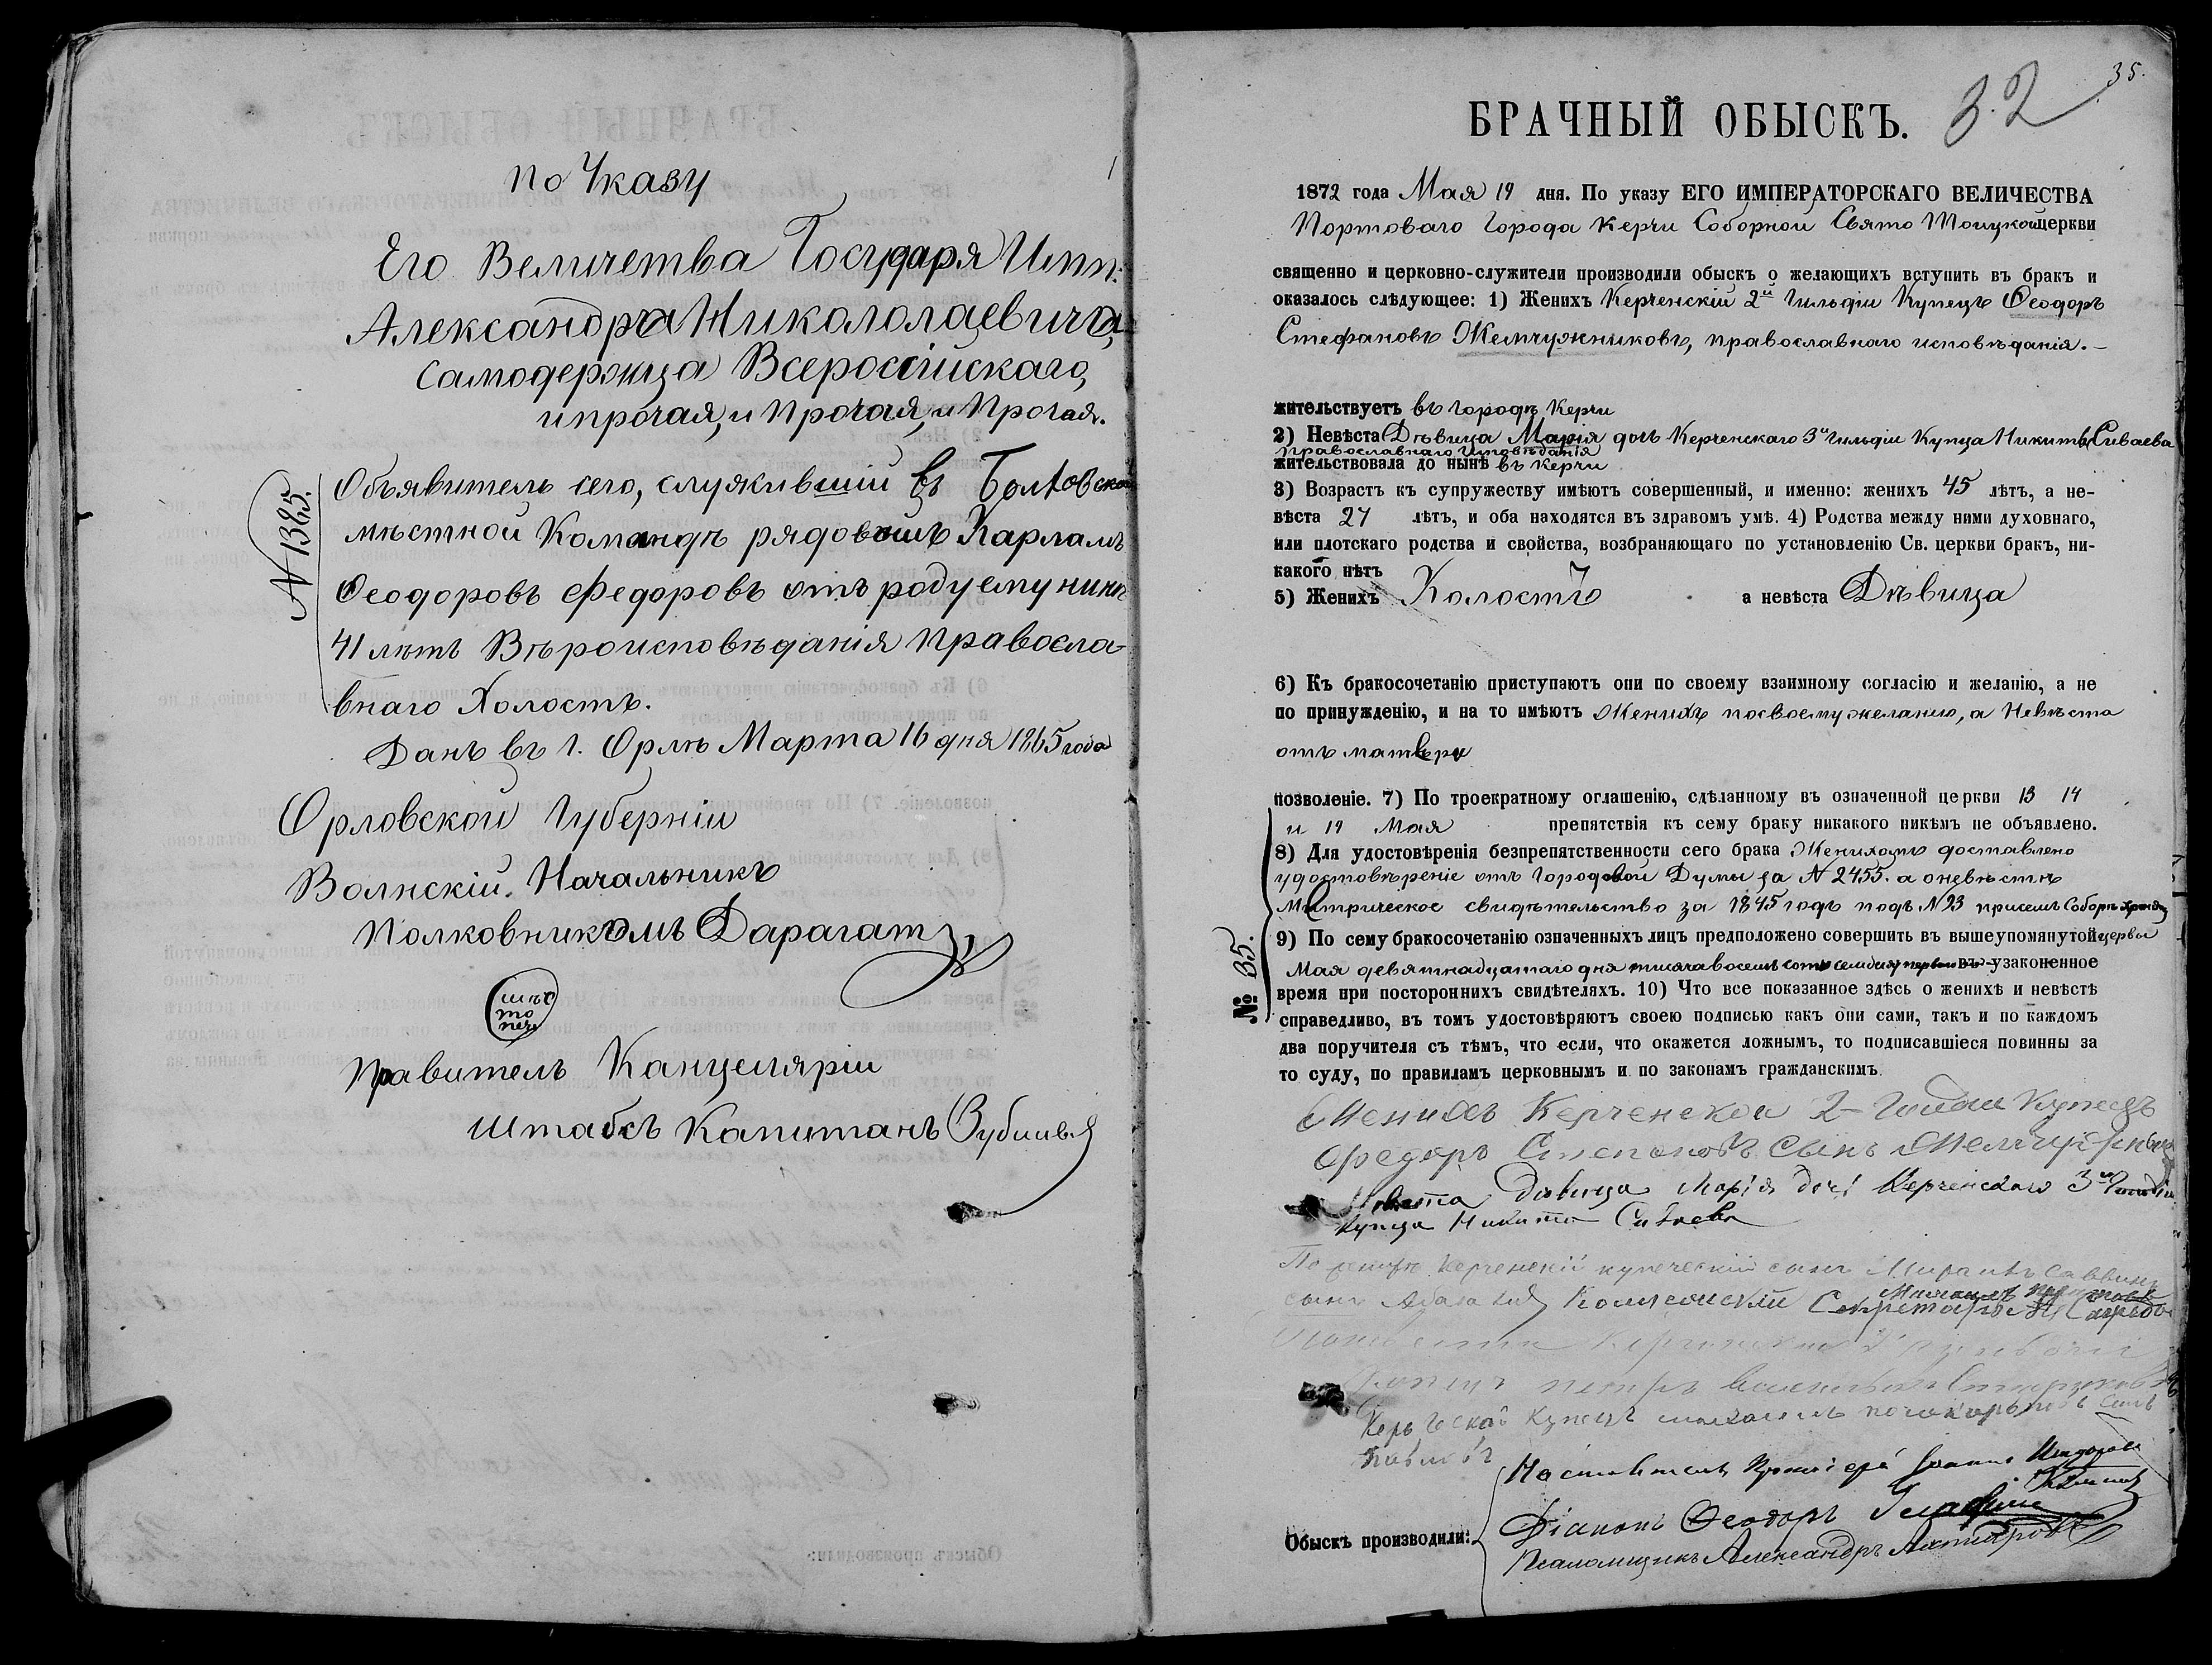 по Указу
Его Величества Государя Имп:
Александра Никололаевича,
Самодержца Всероссійскаго,
и прочая, и Прочая, и Прочая.
N 1385.
Объявитель сего, служившій въ Болховской
мѣстной Командѣ рядовымъ
Ѳеодоровъ Федоровъ отъ роду ему нынѣ
41 лѣтъ Вѣроисповѣданія Правосла-
внаго Холостъ.
Данъ въ г. Орлѣ Марта 16 дня 1865 года
Орловской Губерніи
Воинскій Начальникъ
Полковникомъ Дарагат
мѣс
то
печ
Правитель Канцеляріи
Штабсъ Капитанъ
35.
32
БРАЧНЫЙ ОБЫСКЪ.
1872 года Мая 19 дня. По указу ЕГО ИМПЕРАТОРСКАГО ВЕЛИЧЕСТВА
Портоваго города Керчи Соборной Свято Тоицкой церкви
священно и церковно-служители производили обыскъ о желающихъ вступить въ бракъ и
оказалось слѣдующее: 1) Женихъ Керченскій 2й Гильдіи Купецъ Ѳеодоръ
Стефановъ Жемчужниковъ, православнаго исповѣданія.-
жительствуетъ въ городѣ Керчи
2) Невѣста Дѣвица Марія дочь Керченскаго 3й Гильдіи Купца Никиты Сиваева
православнаго Исповѣданія
жительствовала до нынѣ въ Керчи
3) Возрастъ къ супружеству имѣютъ совершенный, и именно: женихъ 45 лѣтъ, а не-
вѣста 27 лѣтъ, и оба находятся въ здравомъ умѣ. 4) Родства между ними духовнаго,
или плотскаго родства и свойства, возбраняющаго по установленію Св. церкви бракъ, ни-
какого нѣтъ
5) Женихъ Холостъ а невѣста Дѣвица
6) Къ бракосочетанію приступаютъ они по своему взаимному согласію и желанію, а не
по принужденію, и на то имѣютъ Женихъ по своему желанію, а Невѣста
отъ матери
позволеніе. 7) По троекратному оглашенію, сдѣланному въ означенной церкви 13 14
и 19 Мая препятствія къ сему браку никакого никѣмъ не объявлено.
8) Для удостовѣренія безпрепятственности сего брака Женихомъ доставлено
удостовѣреніе отъ Городовой Думы за N 2455. а о невѣстѣ
Метрическое свидѣтельство за 1845 годъ подъ N 23 при семъ Соборѣ
№ 35.
9) По сему бракосочетанію означенныхъ лицъ предположено совершить въ вышеупомянутой церкви
Мая девятнадцатаго дня тысяча восемь сотъ въ узаконенное
время при постороннихъ свидѣтеляхъ. 10) Что все показанное здѣсь о женихѣ и невѣстѣ
справедливо, въ томъ удостовѣряютъ своею подписью какъ они сами, такъ и по каждомъ
два поручителя съ тѣмъ, что если, что окажется ложнымъ, то подписавшіеся повинны за
то суду, по правиламъ церковнымъ и по законамъ гражданскимъ.
Женихъ Керченской 2- Купецъ
Федоръ Степановъ Сынъ
Невѣста Дѣвица Марія дочь Керченскаго 3й
Купца Никиты Сиваева
По женихѣ Керченскій купеческій сынъ
сынъ Секретарь
Купецъ
Настоятель
Діаконъ Ѳеодоръ
Обыскъ производили:
Псаломщикъ Александръ